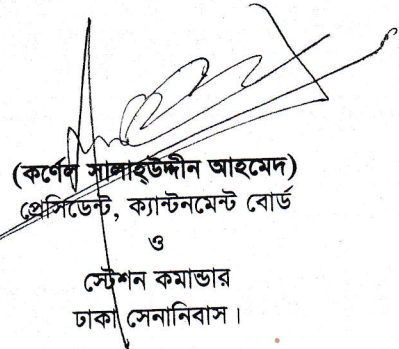 (কর্ণেল সালাহ্উদ্দীন আহমেদ)
প্রেসিডেন্ট, ক্যান্টনমেন্ট বোর্ড
ও
স্টেশন কমান্ডার
ঢাকা সেনানিবাস।